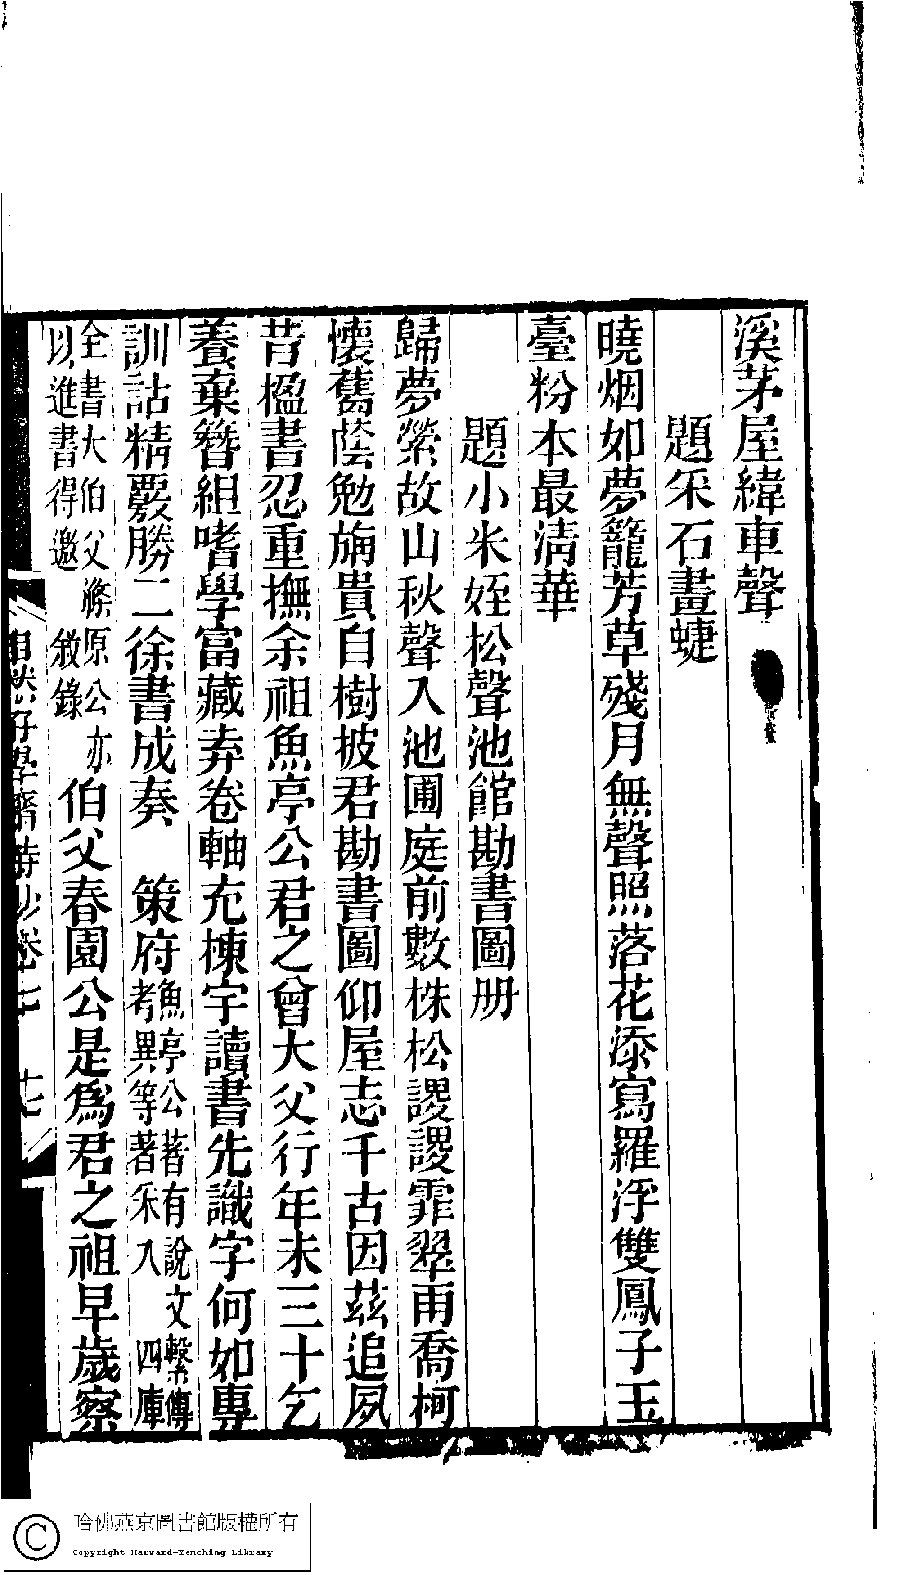 溪茅屋緯車聲
題采石畫蜨
曉烟如夢籠芳草殘月無聲照落花添寫羅浮雙鳳子玉
臺粉本最清華
題小米姪松聲池館勘書圖册
歸夢縈故山秋聲入池圃庭前數株松謖謖霏翠雨喬柯
懷舊蔭勉旃貴自樹披君勘書圖仰屋志千古因茲追夙
昔楹書忍重撫余祖魚亭公君之曾大父行年未三十乞
養棄簪組嗜學富藏弆卷軸充棟宇讀書先識字何如專
訓詁精覈勝二徐書成奏　策府魚亭公著有說文繫傳考異等著采入　四庫
全書大伯父滌原公亦以進書得邀　敘錄伯父春園公是爲君之祖早歲察
自然好學齋詩鈔卷七　十七
哈佛燕京圖書館版權所有
Copyright Harvard-Yenching Library